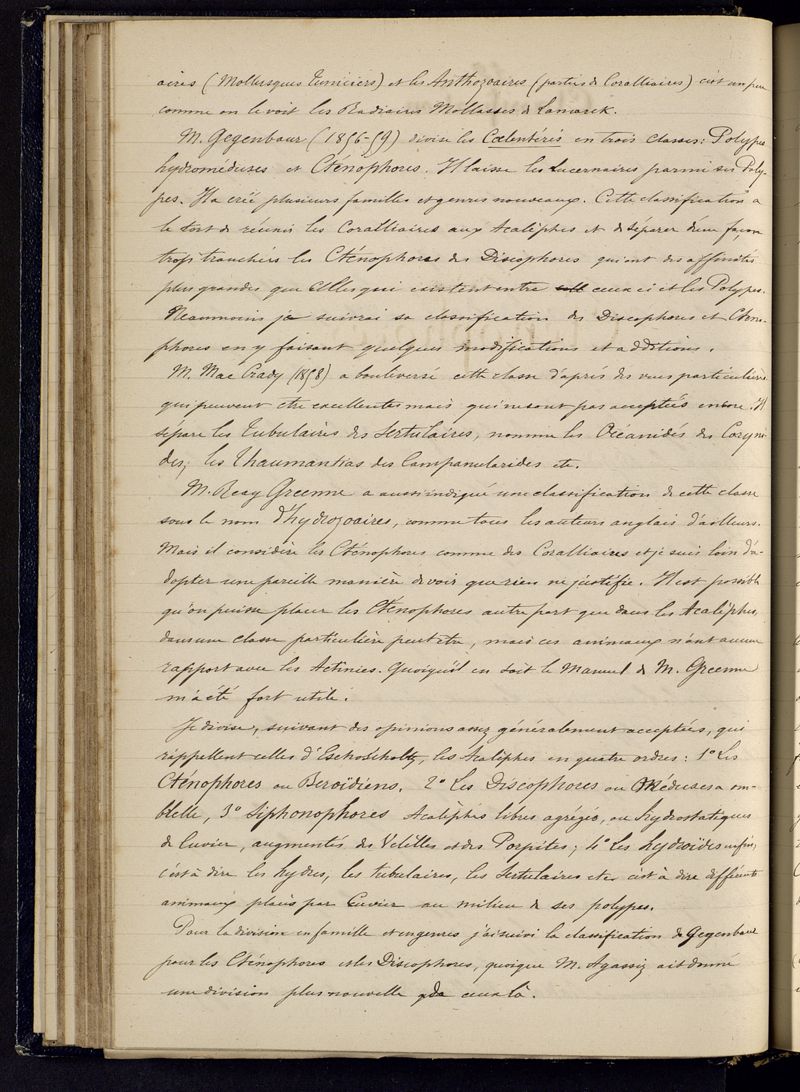 aires (Mollusques Tuniciers) et les Anthozoaires (partie de Coralliaires) c'est un peu
comme on le voit les Radiaires Mollasses de Lamarck.
M. Gegenbaur (1856-59) divise les Cœlentérés en trois classes: Polypes
hydroméduses et Cténophores. Il laisse les Lucernaires parmi ses Poly-
pes. Il a créé plusieurs familles et genres nouveaux. Cette classification a
le tort de réunir les Coralliaires aux Acalèphes et de séparer d'une façon
trop tranchée les Cténophores des Discophores qui ont des affinités
plus grandes que celles qui existent entre ceux ci et les Polypes.
Néanmoins je suivrai sa classification des Discophores et Cténo-
phores en y faisant quelques modifications et additions.
M. Mac Crady (1858) a bouleversé cette classe d'après des vues particulières
qui peuvent être excellentes mais qui ne sont pas acceptées encore. Il
sépare les Tubulaires des Sertulaires, nomme les Océanidés des Coryni-
des, les Thaumantias des Campanularides etc.
M. Reay Greenne a aussi indiqué une classification de cette classe
sous le nom d'hydrozoaires, comme tous les auteurs anglais d'ailleurs.
Mais il considère les Cténophores comme des Coralliaires et je suis loin d'a-
dopter une pareille manière de voir que rien ne justifie. Il est possible
qu'on puisse placer les Cténophores autre part que dans les Acalèphes,
dans une classe particulière peut être, mais ces animaux n'ont aucun
rapport avec les Actinies. Quoiqu'il en soit le Manuel de M. Greenne
m'a été fort utile.
Je divise, suivant des opinions assez généralement acceptées, qui
rappellent celles d'Eschscholtz, les Acalèphes en quatre ordres: 1° Les
Cténophores ou Beroïdiens. 2° Les Discophores ou Méduses a om-
brelle, 3° Siphonophores Acalèphes libres agrégés, ou hydrostatiques
de Cuvier, augmentés des Velelles et des Porpites; 4° Les hydroïdes enfin,
c'est à dire les hydres, les tubulaires, les Sertulaires etc c'est à dire différents
animaux placés par Cuvier au milieu de ses polypes.
Pour la division en famille et en genres j'ai suivi la classification de Gegenbaur
pour les Cténophores et les Discophores, quoique M. Agassiz ait donné
une division plus nouvelle de ceux là.